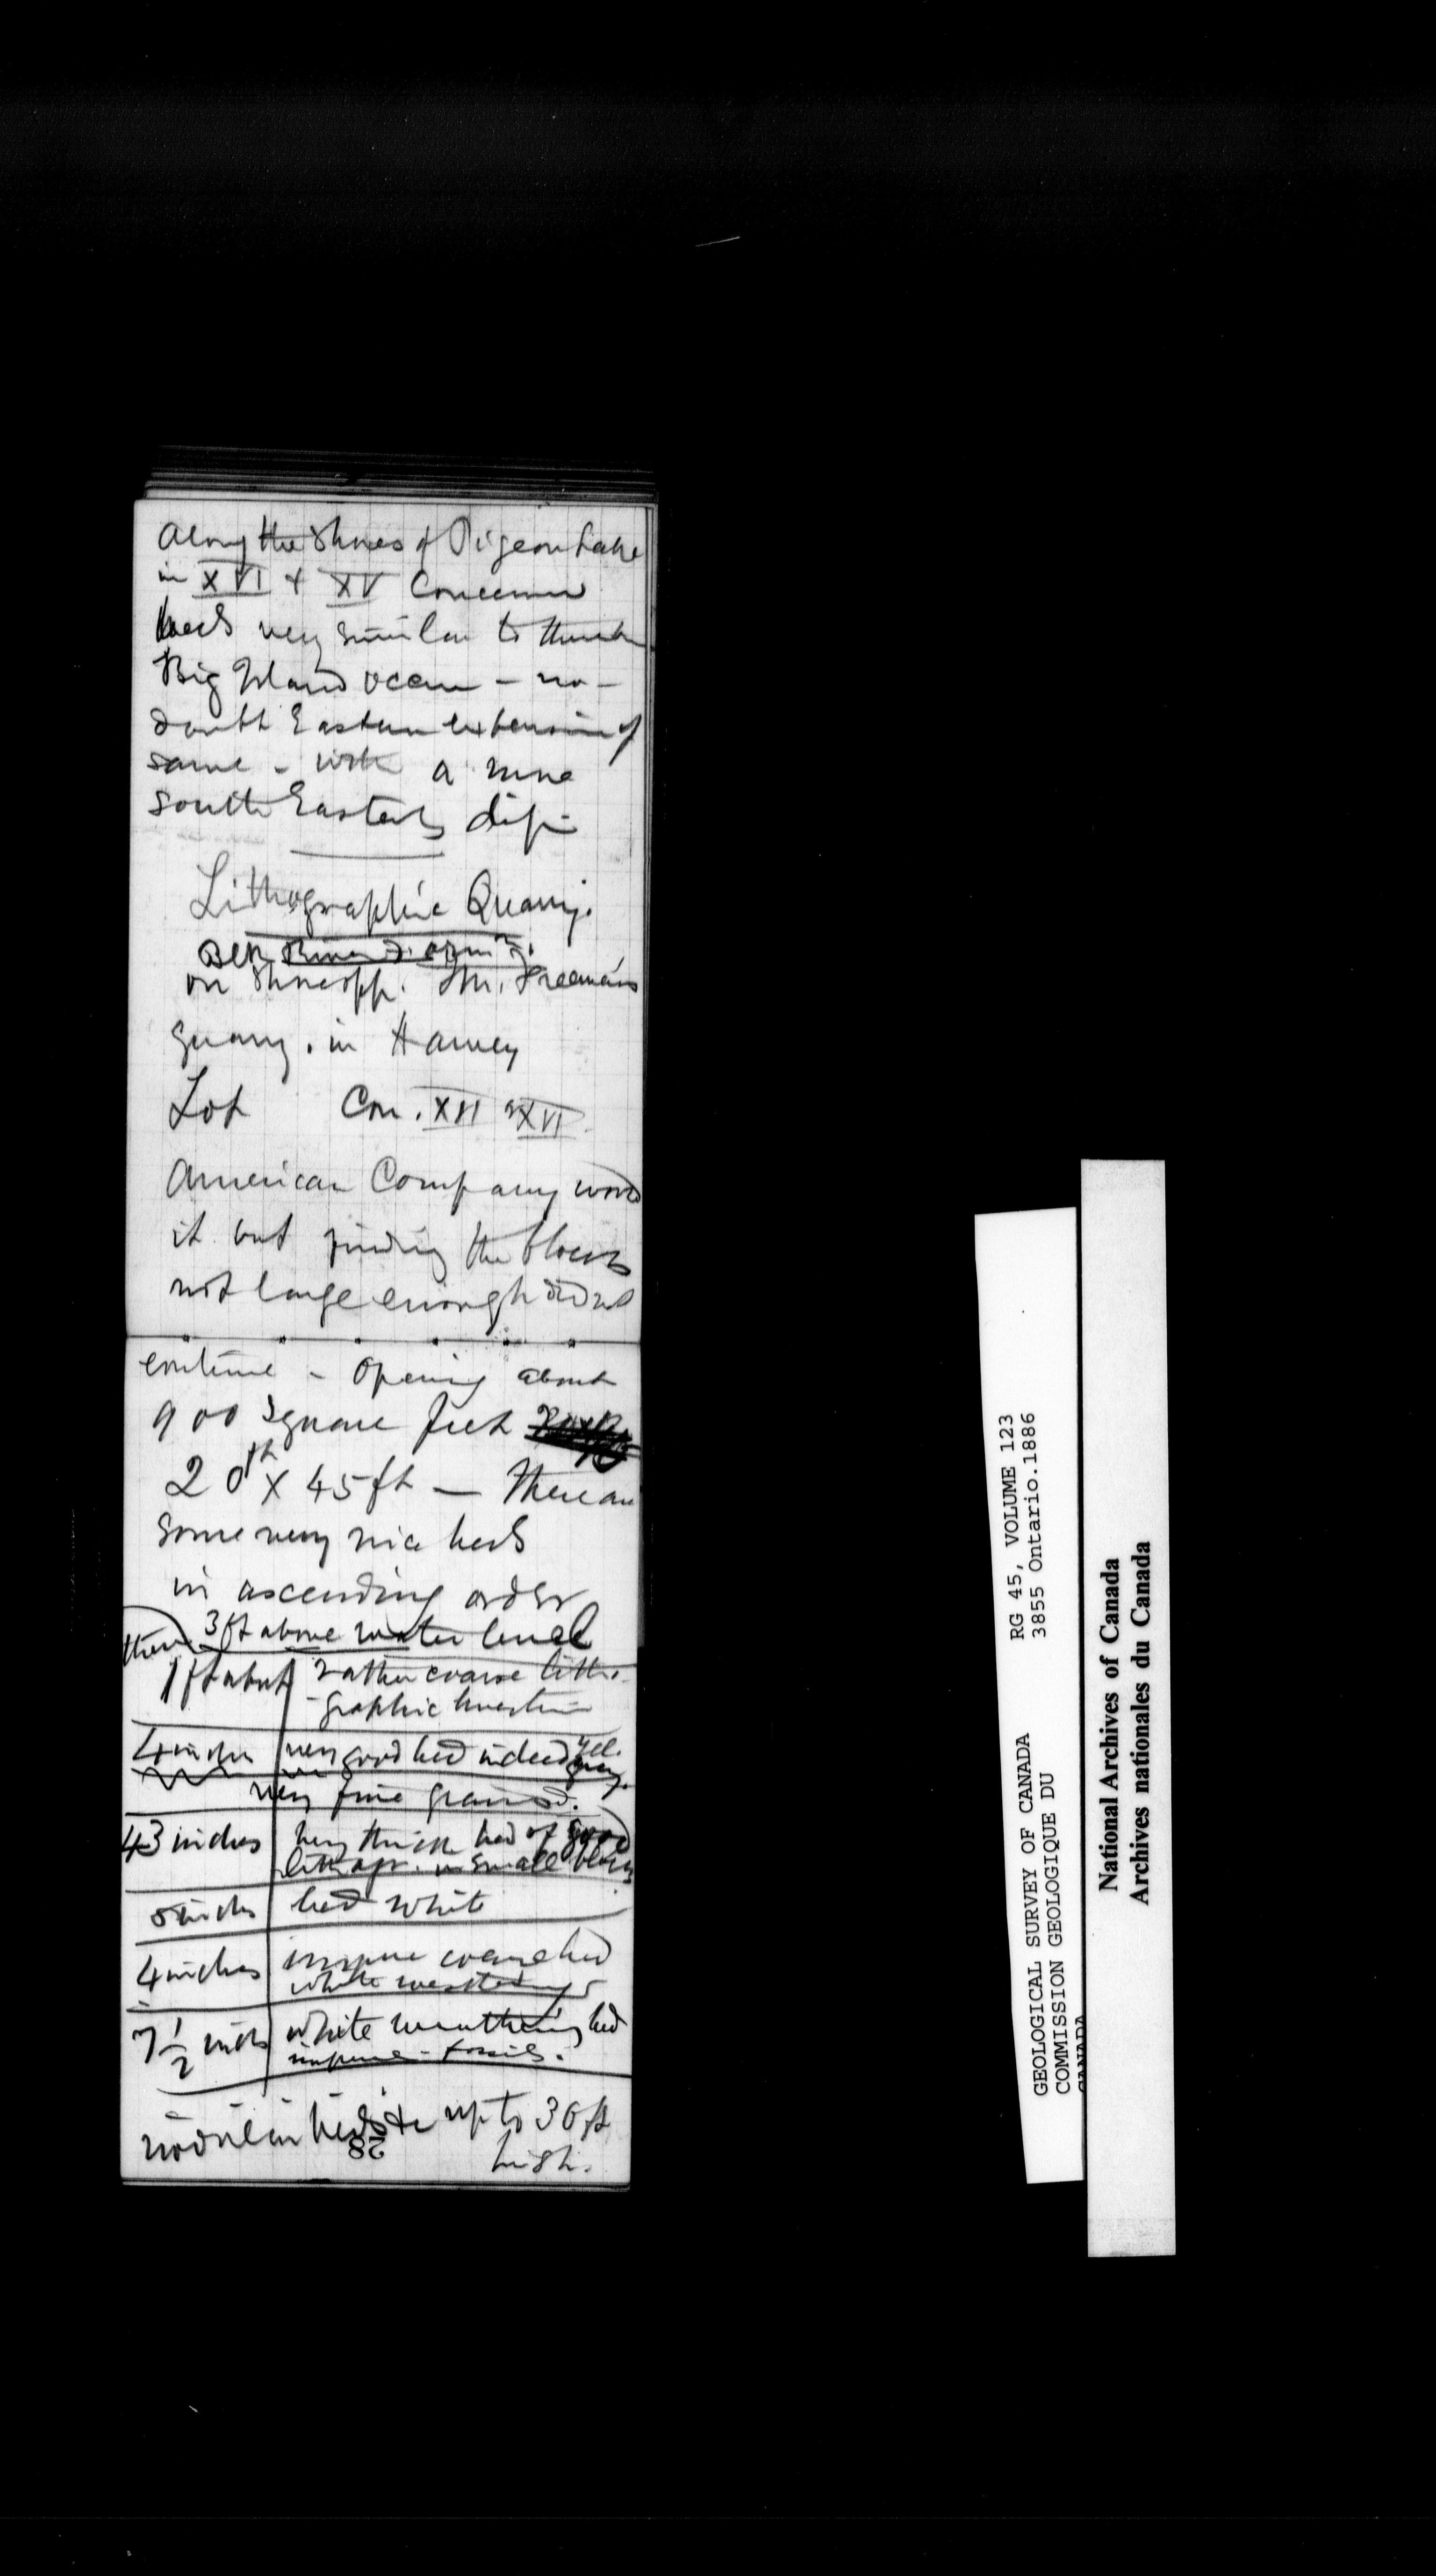 Along the Shores of Pigeon Lake
in XVI & XV Concession
beds very similar to those on
Big Island occur - no -
South Eastern extension of
same - with a more
South Easterly dip
Lithographic Quarry.
on Shore opp. Mr. Freeman's
quarry. in Harvey
Lot Con. XVI XVI
American Company word
it but finding the blocks
not large enough did not
continue - Opening about
900 square feet
20 ft x 45 ft — There are
some very nice beds
in ascending order
then 3 ft above water level
1 ft about rather coarse litho-
graphic limestone
4 inches very good bed indeed yel.
grey.
very fine grained.
43 inches very thick bed of good
lithogr. in small blocks
5 inches bed white
4 inches impure coarse bed
white weathering
7 1/2 inches white weathering bed
impure - fossils.
nodular beds &c up to 30 ft
high.
28
RG 45, VOLUME 123
3855 Ontario.1886
GEOLOGICAL SURVEY OF CANADA
COMMISSION GEOLOGIQUE DU
CANADA
National Archives of Canada
Archives nationales du Canada